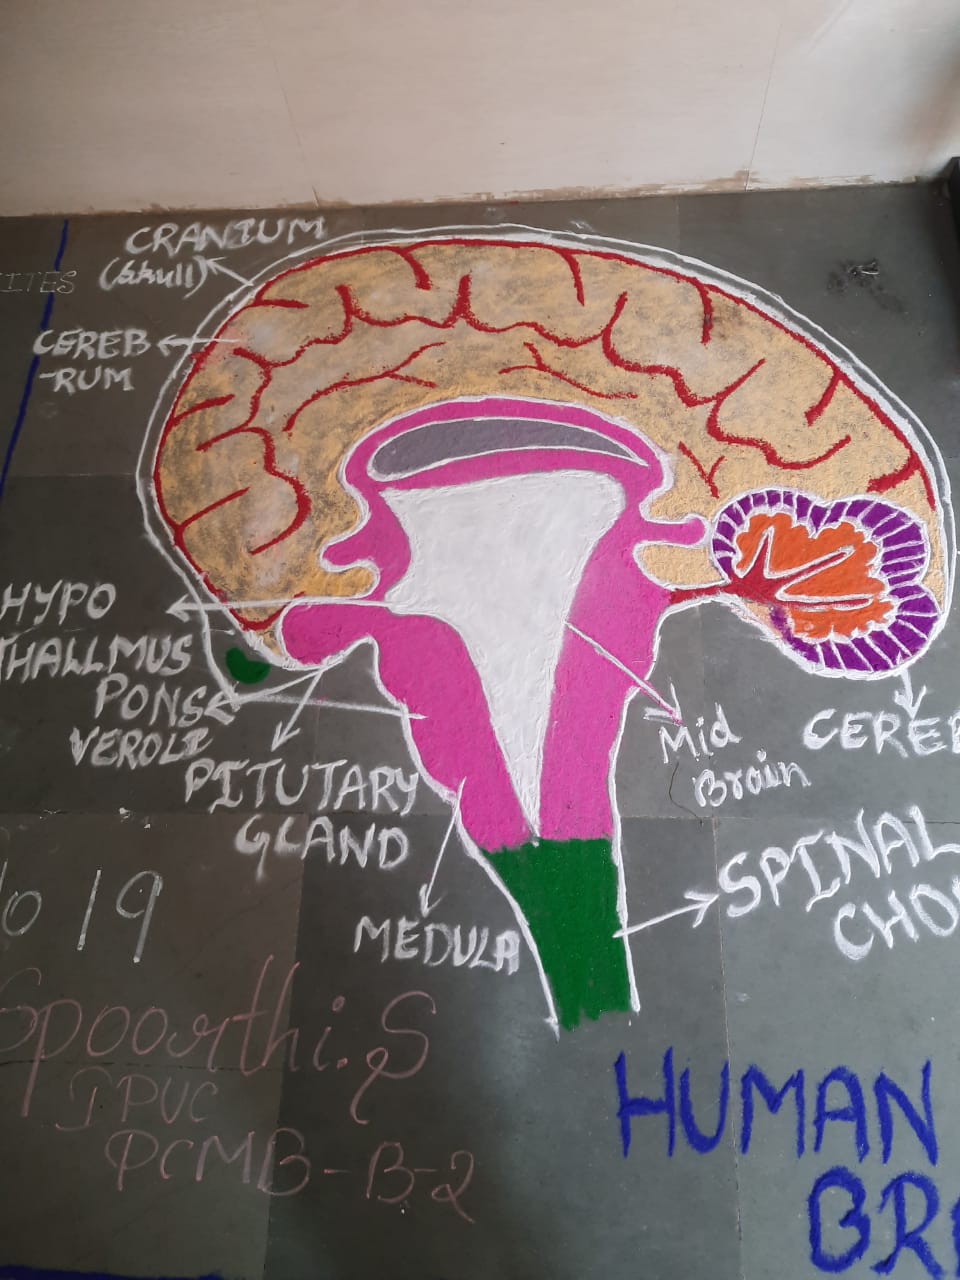 CRANIUM
(Skull)
ITES
CEREB
-RUM
HYPO
THALLMUS
PONS
VEROLI
PITUTARY
GLAND
Mid
Brain
CEREB
SPINAL
CHO
MEDULA
No 19
Spoorthi.S
I PUC
PCMB-B-2
HUMAN
BRA